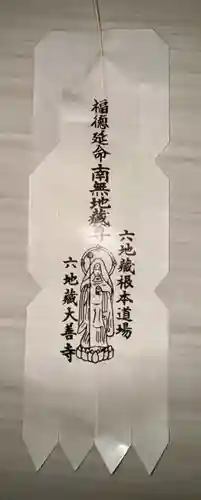 福徳延命南無地蔵尊
六地蔵根本道場
六地蔵大善寺